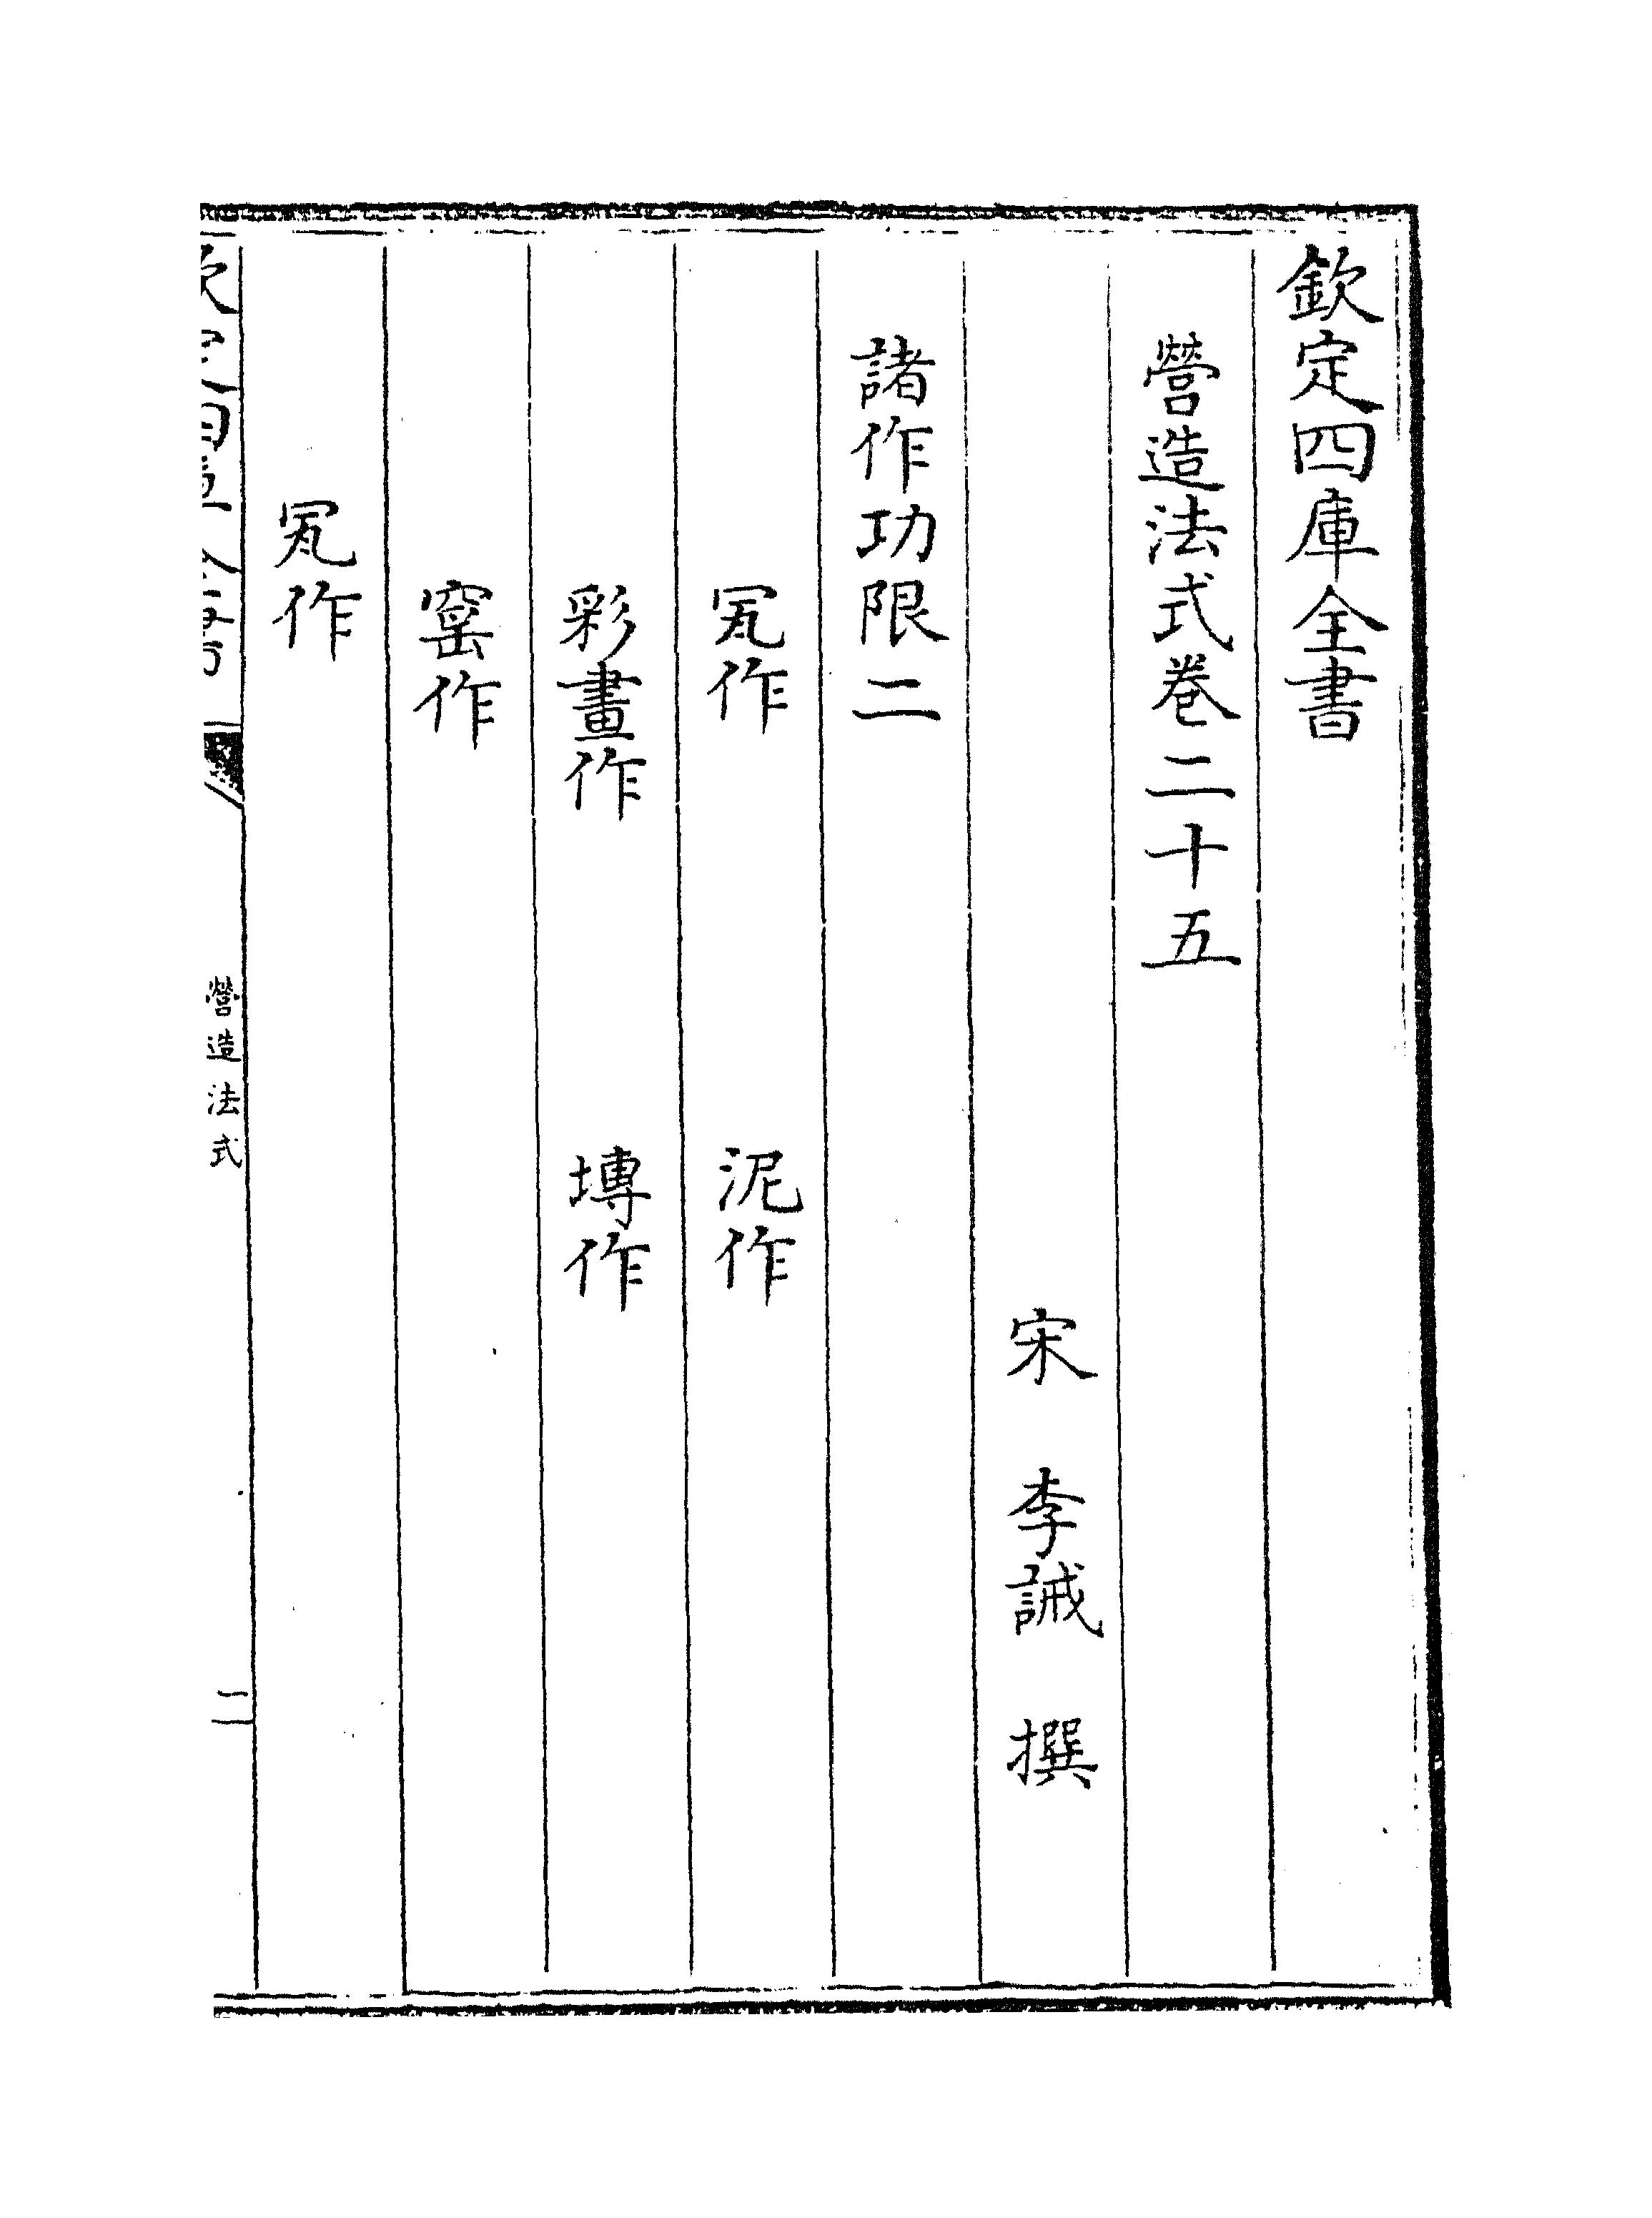 欽定四庫全書
營造法式卷二十五
宋 李誡 撰
諸作功限二
瓦作 泥作
彩畫作 塼作
窰作
瓦作
營造法式
二